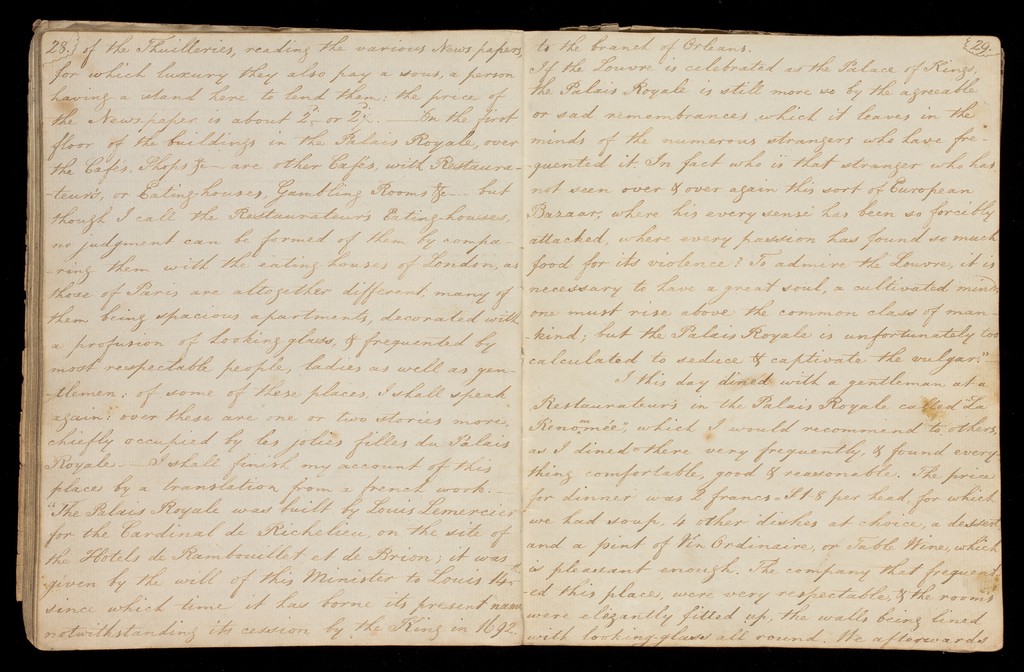 28. of the Thuilleries, reading the various News papers,
for which luxury they also pay a sous, a person
having a stand here to lend them: the price of
the Newspaper is about 2d. or 2½d. — On the first
floor of the buildings in the Palais Royale, over
the Cafés, Shops &c — are other Cafés, with Restaura-
-teurs, or Eating houses, Gambling Rooms &c — but
though I call the Restaurateurs Eating houses,
no judgment can be formed of them by compa-
-ring them with the eating houses of London, as
those of Paris are altogether different, many of
them being spacious apartments, decorated with
a profusion of Looking glass, & frequented by
most respectable people, ladies as well as gen-
-tlemen; of some of these places, I shall speak
again: over these are one or two stories more,
chiefly occupied by les jolies filles du Palais
Royale — I shall finish my account of this
place by a translation from a french work. —
"The Palais Royale was built by Louis Lemercier
for the Cardinal de Richelieu, on the site of
the Hotels de Rambouillet et de Brion; it was
given by the will of this Minister to Louis 14th
since which time it has borne its present name
notwithstanding its cession by the King in 1692.
29.
to the branch of Orleans.
If the Louvre is celebrated as the Palace of Kings,
the Palais Royale is still more so by the agreeable
or sad remembrances which it leaves in the
minds of the numerous strangers who have fre-
-quented it. In fact who is that stranger who has
not seen over & over again this sort of European
Bazaar, where his every sense has been so forcibly
attacked, where every passion has found so much
food for its violence? To admire the Louvre, it is
necessary to have a great soul, a cultivated mind
one must rise above the common class of man-
-kind; but the Palais Royale is unfortunately too
calculated to seduce & captivate the vulgar."
I this day dined with a gentleman at a
Restaurateur's in the Palais Royale called "La
Renommée", which I would recommend to others,
as I dined there very frequently, & found every
thing comfortable, good & reasonable. The price
for dinner was 2 francs = 1/8 per head, for which
we had soup, 4 other dishes at choice, a dessert
and a pint of Vin Ordinaire, or Table Wine, which
is pleasant enough. The company that frequent-
-ed this place, were very respectable, & the rooms
were elegantly fitted up, the walls being lined
with looking-glass all round. We afterwards